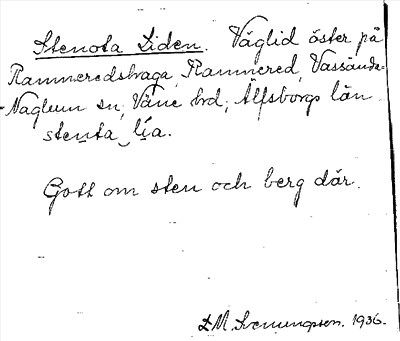 Stenota Liden. Väglid öster på
Rammeredshaga, Rammered, Vassända-
-Naglum sn, Väne hd, Älfsborgs län.
stenta lía.
Gott om sten och berg där.
D.M. Svenungsen. 1936.